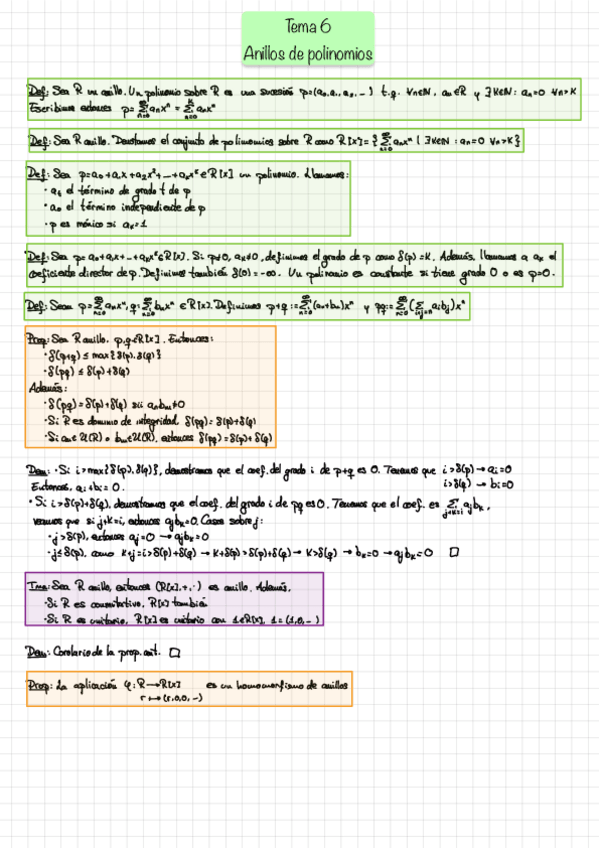 Tema 6
Anillos de polinomios
Def: Sea R un anillo. Un polinomio sobre R es una sucesión p=(a₀,a₁,a₂,...) t.q. ∀n∈ℕ, aₙ∈R y ∃K∈ℕ: aₙ=0 ∀n>K
Escribimos entonces p= ∑_{n=0}^{∞} aₙxⁿ = ∑_{n=0}^{K} aₙxⁿ
Def: Sea R anillo. Denotamos el conjunto de polinomios sobre R como R[x]={ ∑_{n=0}^{∞} aₙxⁿ | ∃K∈ℕ : aₙ=0 ∀n>K }
Def: Sea p=a₀+a₁x+a₂x²+...+aₖxᴷ∈R[x] un polinomio. Llamamos:
· aₜ el término de grado t de p
· a₀ el término independiente de p
· p es mónico si aₖ=1
Def: Sea p=a₀+a₁x+...+aₖxᴷ∈R[x]. Si p≠0, aₖ≠0, definimos el grado de p como δ(p)=K. Además, llamamos a aₖ el
coeficiente director de p. Definimos también δ(0)=-∞. Un polinomio es constante si tiene grado 0 o es p=0.
Def: Sean p=∑_{n=0}^{∞} aₙxⁿ, q=∑_{n=0}^{∞} bₙxⁿ ∈R[x]. Definimos p+q:=∑_{n=0}^{∞}(aₙ+bₙ)xⁿ y pq:=∑_{n=0}^{∞}(∑_{i+j=n} aᵢbⱼ)xⁿ
Prop: Sea R anillo. p,q∈R[x]. Entonces:
· δ(p+q) ≤ max{δ(p),δ(q)}
· δ(pq) ≤ δ(p)+δ(q)
Además:
· δ(pq)=δ(p)+δ(q) sii aₙbₘ≠0
· Si R es dominio de integridad, δ(pq)=δ(p)+δ(q)
· Si aₙ∈U(R) o bₘ∈U(R), entonces δ(pq)=δ(p)+δ(q)
Dem: · Si i>max{δ(p),δ(q)}, demostramos que el coef. del grado i de p+q es 0. Tenemos que i>δ(p)→aᵢ=0
Entonces, aᵢ+bᵢ=0. i>δ(q)→bᵢ=0
· Si i>δ(p)+δ(q), demostramos que el coef. del grado i de pq es 0. Tenemos que el coef. es ∑_{j+k=i} aⱼbₖ,
veamos que si j+k=i, entonces aⱼbₖ=0. Casos sobre j:
· j>δ(p), entonces aⱼ=0 → aⱼbₖ=0
· j≤δ(p), como k+j=i>δ(p)+δ(q) → k+δ(p)>δ(p)+δ(q) → k>δ(q) → bₖ=0 → aⱼbₖ=0 □
Tma: Sea R anillo, entonces (R[x],+,·) es anillo. Además,
· Si R es conmutativo, R[x] también
· Si R es unitario, R[x] es unitario con 1∈R[x], 1=(1,0,...)
Dem: Corolario de la prop. ant. □
Prop: La aplicación φ: R→R[x] es un homomorfismo de anillos
r↦(r,0,0,...)